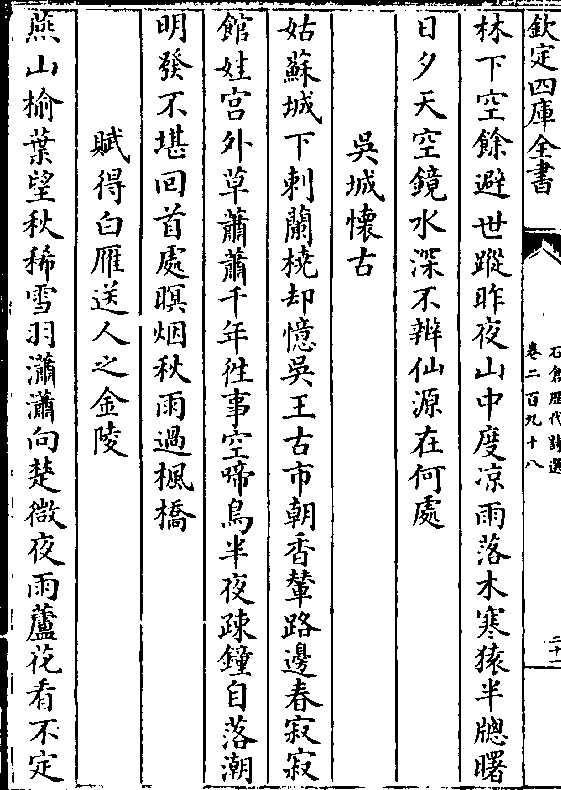 欽定四庫全書
石倉歷代詩選
卷二百九十八
二十二
林下空餘避世蹤昨夜山中度凉雨落木寒猿半牕曙
日夕天空鏡水深不辨仙源在何處
吳城懷古
姑蘇城下刺蘭橈却憶吳王古市朝香輦路邊春寂寂
館娃宮外草蕭蕭千年徃事空啼鳥半夜疎鐘自落潮
明發不堪回首處暝烟秋雨過楓橋
賦得白雁送人之金陵
燕山榆葉望秋稀雪羽瀟瀟向楚微夜雨蘆花看不定